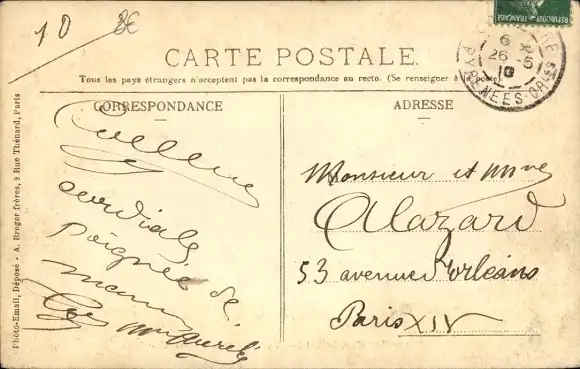 10 8€
CARTE POSTALE.
Tous les pays étrangers n'acceptent pas la correspondance au recto. (Se renseigner à la poste)
RÉPUBLIQUE FRANÇAISE
6
26 -5
10
PYRÉNÉES-ORles
CORRESPONDANCE
ADRESSE
cordiale
Poignée de
main
Monsieur et Mme
Alazard
53 avenue d'orléans
Paris XIV
Photo-Email, Déposé - A. Breger frères, 9 Rue Thénard, Paris